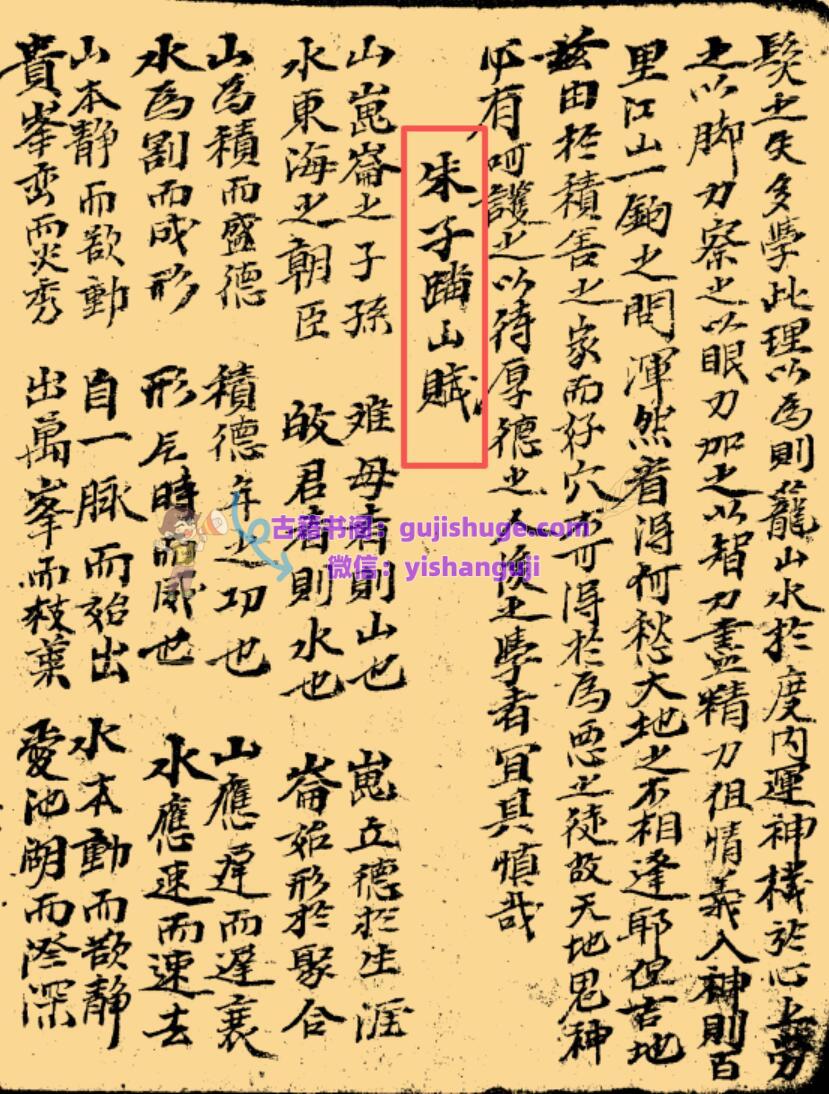 髮之失多學此理以為則籠山水於度内運神機於心上勞
之以脚力察之以眼力加之以智力盡精力但情義入神則百
里江山一鉤之間渾然着得何愁大地之不相逢耶但吉地
兹由於積善之家而好穴亦可得於為惡之徒故天地鬼神
有呵護之以待厚德之人後之學者冝具慎哉
朱子踏山賦
山崑崙之子孫 难母者則山也 崑立德於生涯
水東海之朝臣 皎君者則水也 崙始形於聚合
山為積而盛德 積德年之功也 山應遲而遲衰
水為割而成形 形乞時而威也 水應速而速去
山本静而欲動 自一脉而始出 水本動而欲静
貴峯巒而炎秀 出萬峯而枝葉 愛池湖而澄深
古籍书阁：gujishuge.com
微信：yishanguji